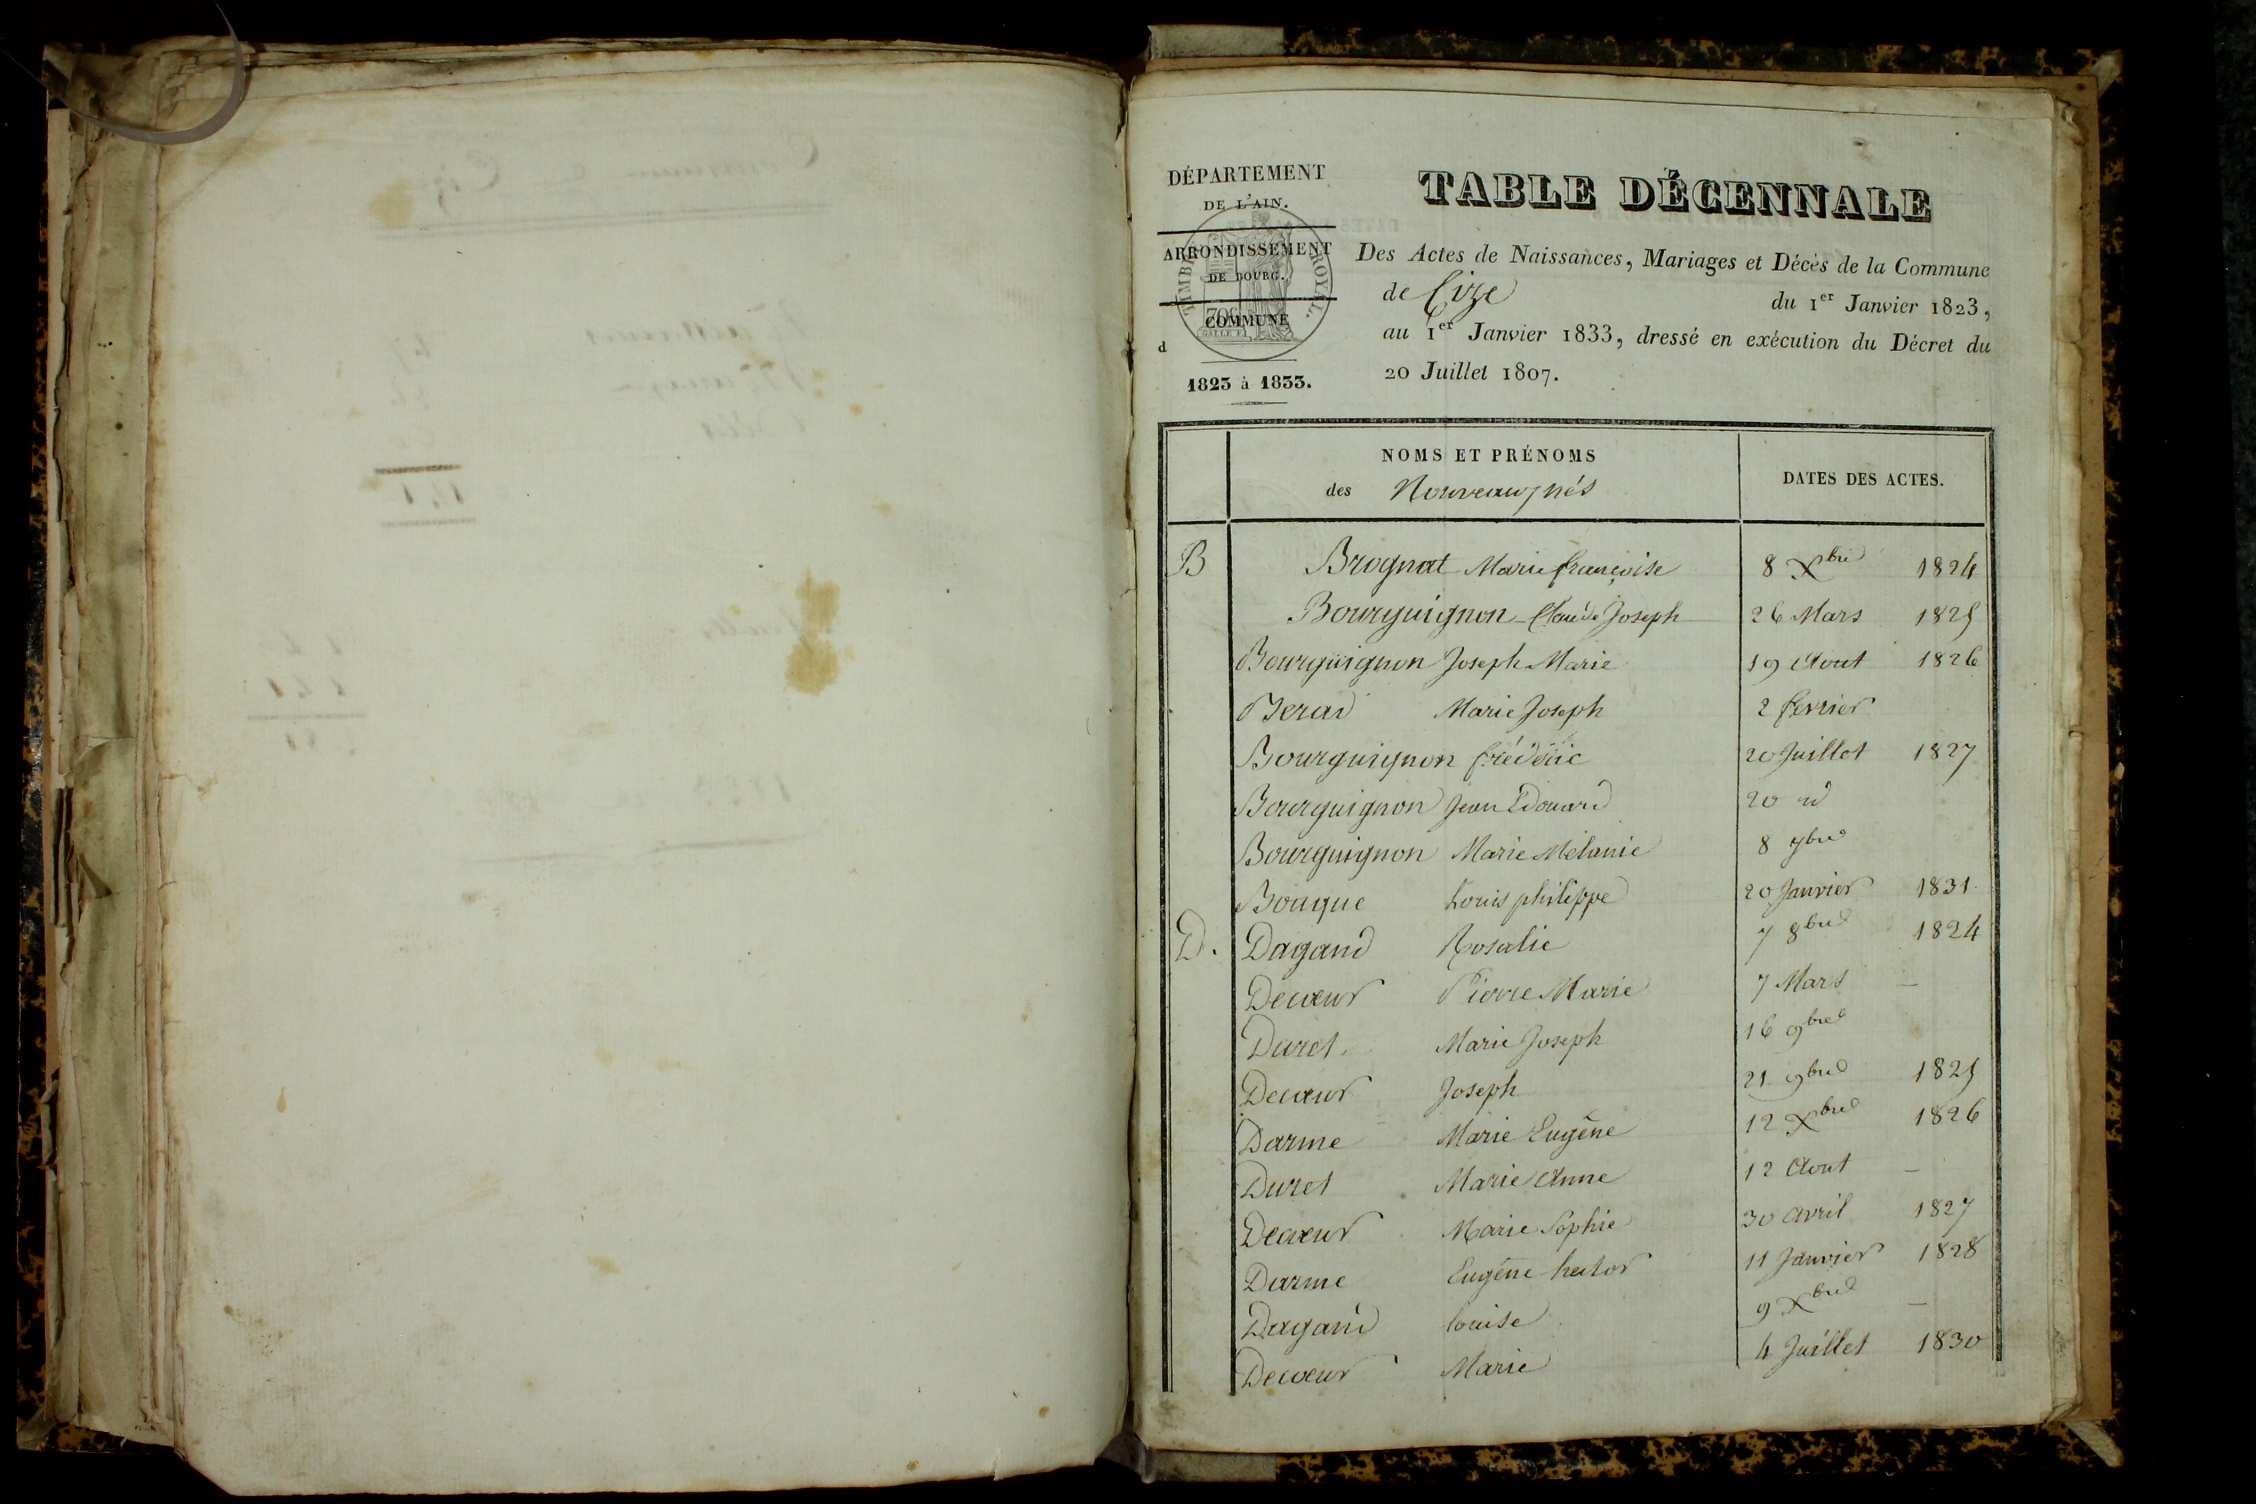 DÉPARTEMENT
DE L'AIN.
ARRONDISSEMENT
DE BOURG.
COMMUNE
d
1823 à 1833.
TIMBRE ROYAL.
TABLE DÉCENNALE
Des Actes de Naissances, Mariages et Décès de la Commune
de Cize du 1er Janvier 1823,
au 1er Janvier 1833, dressé en exécution du Décret du
20 Juillet 1807.
NOMS ET PRÉNOMS
des Nouveaux nés
DATES DES ACTES.
B Brognat Marie françoise 8 Xbre 1824
Bourguignon Claude Joseph 26 Mars 1825
Bourguignon Joseph Marie 19 Aout 1826
Berard Marie Joseph 2 fevrier
Bourguignon frédéric 20 Juillet 1827
Bourguignon Jean Edouard 20 id
Bourguignon Marie Mélanie 8 7bre
Bouque Louis philippe 20 Janvier 1831
D. Dagand Rosalie 7 8bre 1824
Decœur Pierre Marie 7 Mars —
Duret Marie Joseph 16 9bre
Decœur Joseph 21 9bre 1825
Darme Marie Eugène 12 Xbre 1826
Duret Marie Anne 12 Aout —
Decœur Marie Sophie 30 avril 1827
Darme Eugène hector 11 Janvier 1828
Dagand louise 9 Xbre —
Decœur Marie 4 Juillet 1830